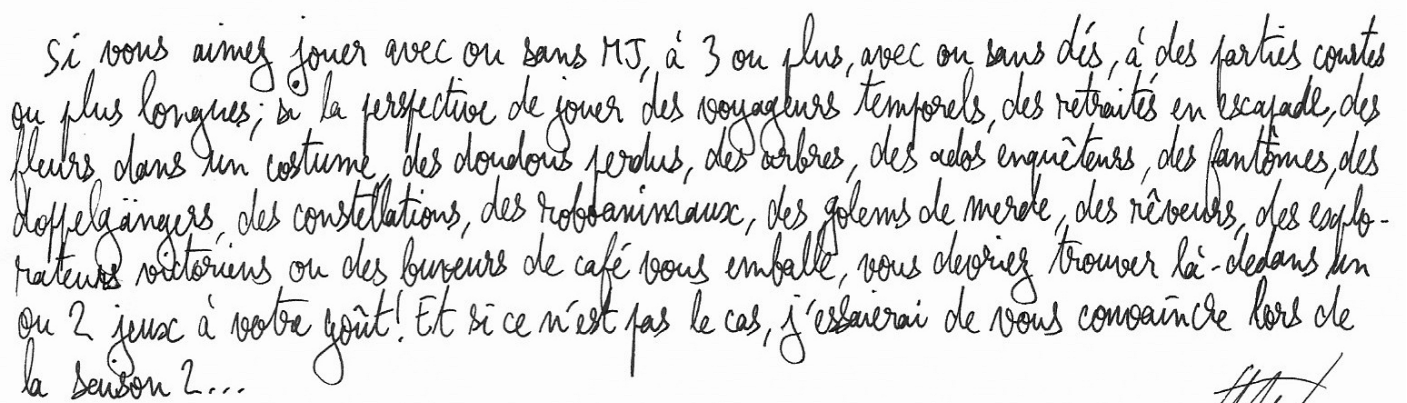 Si vous aimez jouer avec ou sans MJ, à 3 ou plus, avec ou sans dés, à des parties courtes
ou plus longues; si la perspective de jouer des voyageurs temporels, des retraités en escapade, des
fleurs dans un costume, des doudous perdus, des arbres, des ados enquêteurs, des fantômes, des
doppelgängers, des constellations, des roboanimaux, des golems de merde, des rêveurs, des explo-
rateurs victoriens ou des buveurs de café vous emballe, vous devriez trouver là-dedans un
ou 2 jeux à votre goût! Et si ce n'est pas le cas, j'essaierai de vous convaincre lors de
la saison 2...